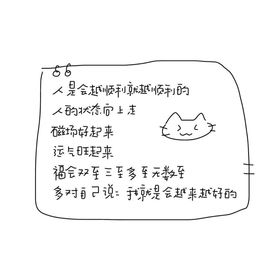 人是会越顺利就越顺利的
人的状态向上走
磁场好起来
运与旺起来
福会双至三至多至无数至
多对自己说：我就是会越来越好的